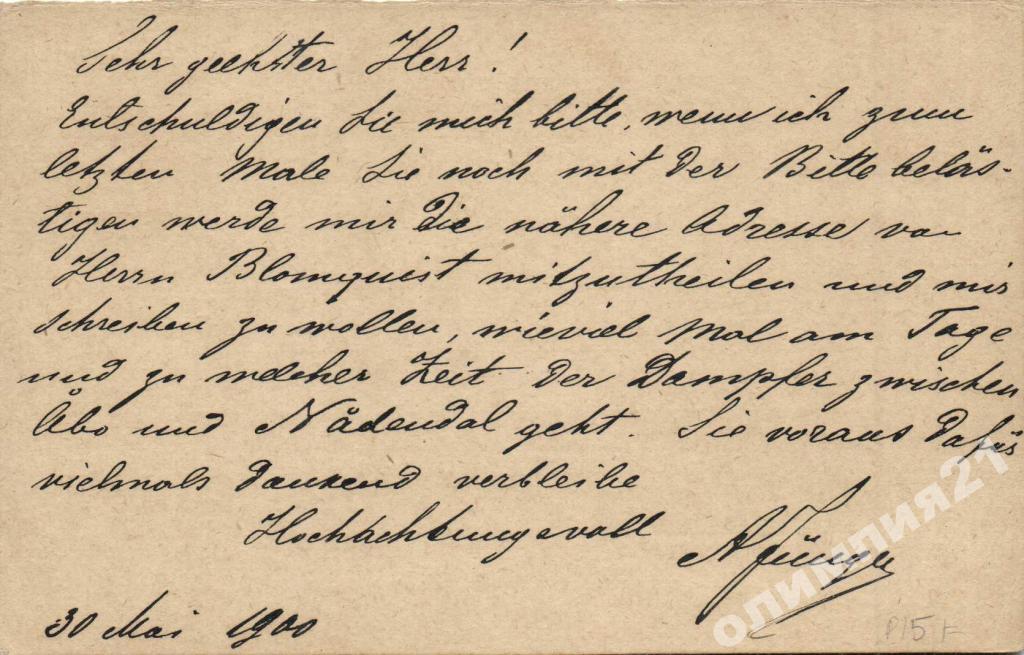 Sehr geehrter Herr!
Entschuldigen Sie mich bitte, wenn ich zum
letzten Male Sie noch mit der Bitte beläs-
tigen werde mir die nähere Adresse von
Herrn Blomquist mitzutheilen und mir
schreiben zu wollen, wieviel Mal am Tage
und zu welcher Zeit der Dampfer zwischen
Åbo und Nådendal geht. Sie voraus dafür
vielmals dankend verbleibe
Hochachtungsvoll
30 Mai 1900
олимпия21